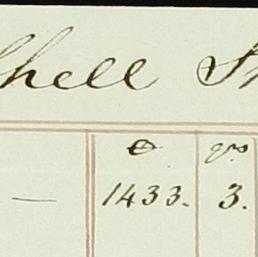 hell
qrs
— 1433. 3.